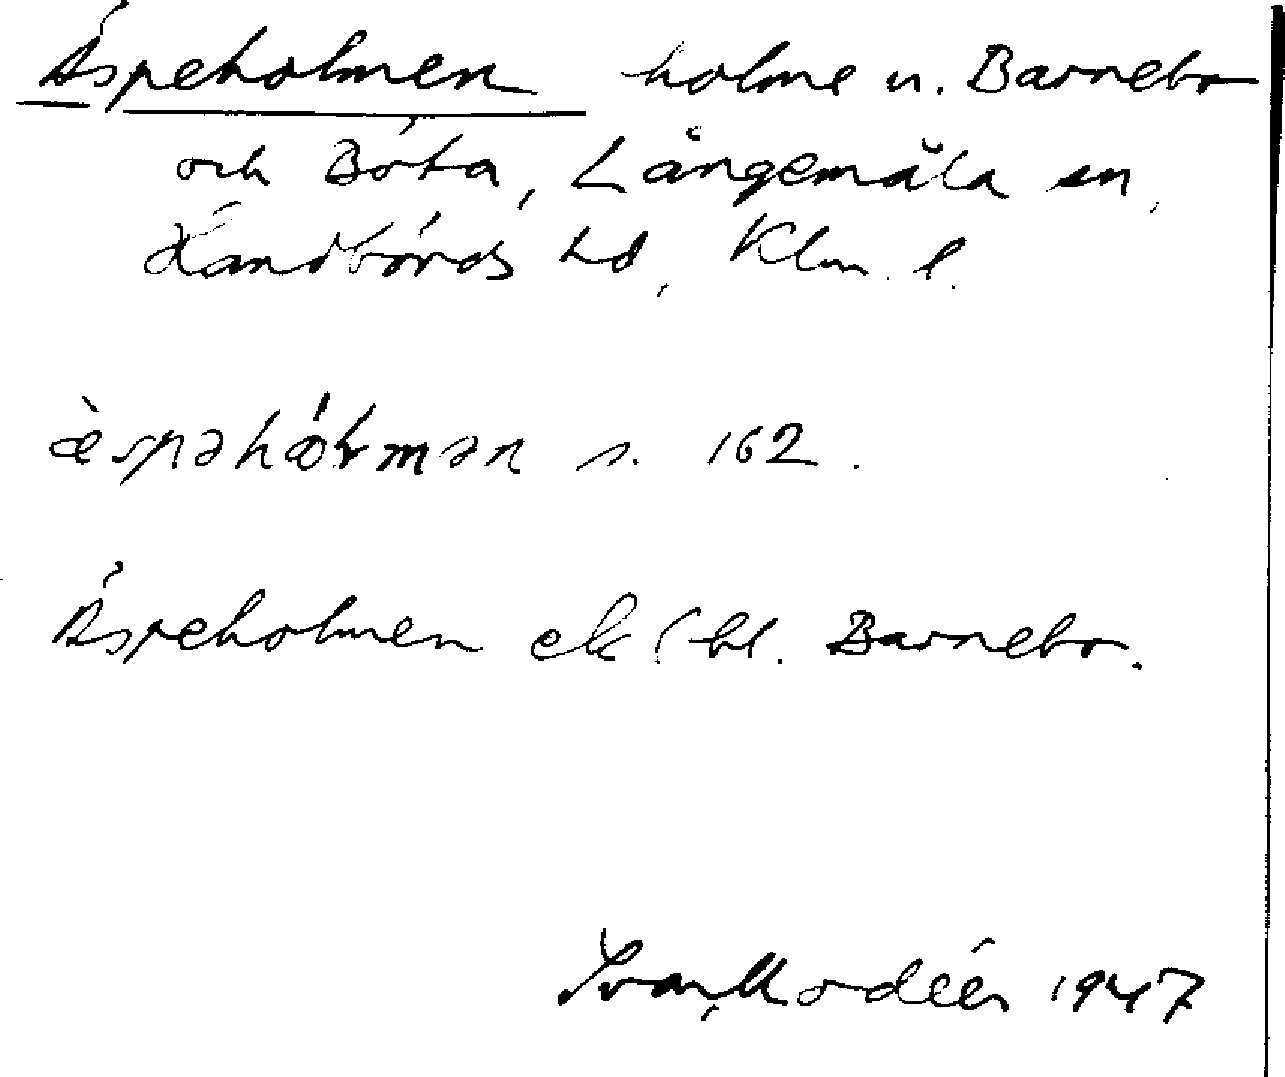 Äspeholmen holme n. Barnebo
och Böta, Långemåla sn,
Handbörds hd, Klm. l.
æ̀spəhół́mən s. 162.
Äspeholmen ek bl. Barnebo.
Ivar Modéer 1947